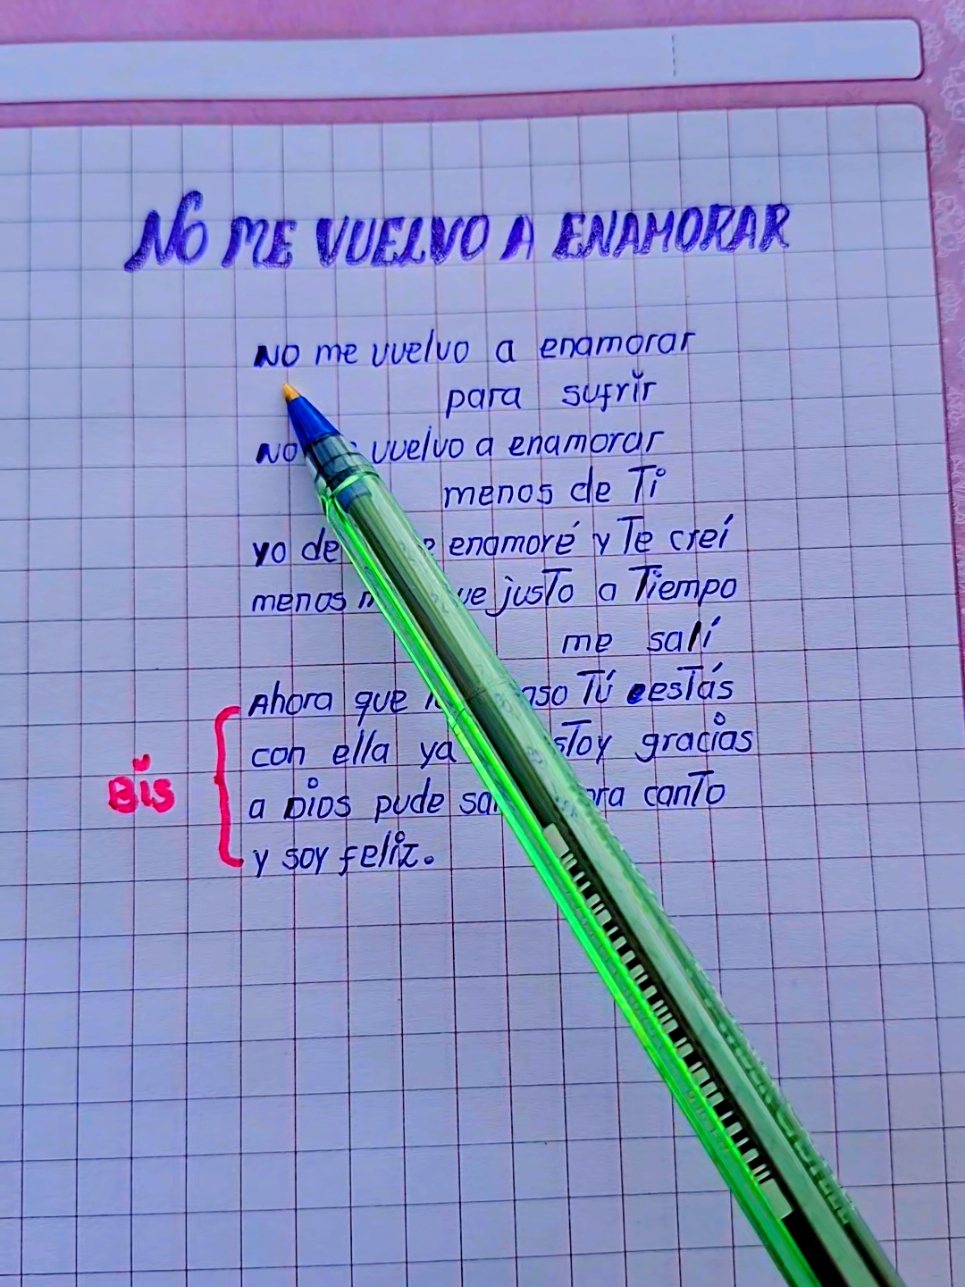 NO ME VUELVO A ENAMORAR
NO me vuelvo a enamorar
para sufrir
NO vuelvo a enamorar
menos de Ti
yo de enamoré y Te creí
menos justo a Tiempo
me salí
Ahora que Tú eestás
con ella ya gracias
a Dios pude canto
y soy feliz.
BIS